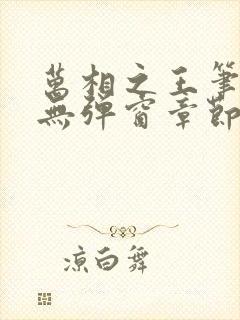 萬相之王筆
無彈窗章節
涼白舞